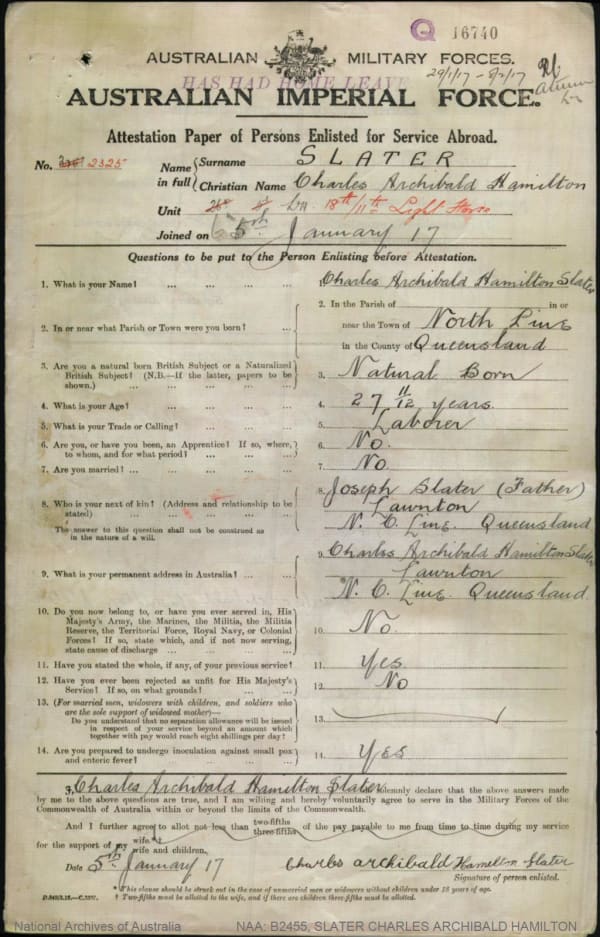 Q 16740
AUSTRALIAN MILITARY FORCES.
HAS HAD HOME LEAVE 29/1/17 – 8/2/17
AUSTRALIAN IMPERIAL FORCE.
Attestation Paper of Persons Enlisted for Service Abroad.
No. 2325
Name in full { Surname SLATER
Christian Name Charles Archibald Hamilton
Unit 18th/11th Light Horse
Joined on 5th January 17
Questions to be put to the Person Enlisting before Attestation.
1. What is your Name? ... ... ... ... 1. Charles Archibald Hamilton Slater
2. In or near what Parish or Town were you born? ... 2. In the Parish of in or
near the Town of North Line
in the County of Queensland
3. Are you a natural born British Subject or a Naturalized
British Subject? (N.B.—If the latter, papers to be
shown.) ... ... ... ... ... 3. Natural Born
4. What is your Age? ... ... ... ... 4. 27 11/12 years.
5. What is your Trade or Calling? ... ... ... 5. Laborer
6. Are you, or have you been, an Apprentice? If so, where,
to whom, and for what period? ... ... ... 6. No.
7. Are you married? ... ... ... ... ... 7. No
8. Who is your next of kin? (Address and relationship to be
stated) ... ... ... ... ... 8. Joseph Slater (Father)
Lawnton
N. C. Line. Queensland
The answer to this question shall not be construed as
in the nature of a will.
9. What is your permanent address in Australia? ... ... 9. Charles Archibald Hamilton Slater
Lawnton
N. C. Line. Queensland.
10. Do you now belong to, or have you ever served in, His
Majesty's Army, the Marines, the Militia, the Militia
Reserve, the Territorial Force, Royal Navy, or Colonial
Forces? If so, state which, and if not now serving,
state cause of discharge ... ... ... ... 10. No.
11. Have you stated the whole, if any, of your previous service? 11. Yes
12. Have you ever been rejected as unfit for His Majesty's
Service? If so, on what grounds? ... ... ... 12. No
13. (For married men, widowers with children, and soldiers who
are the sole support of widowed mother)—
Do you understand that no separation allowance will be issued
in respect of your service beyond an amount which
together with pay would reach eight shillings per day? 13.
14. Are you prepared to undergo inoculation against small pox
and enteric fever? ... ... ... ... 14. Yes
I, Charles Archibald Hamilton Slater solemnly declare that the above answers made
by me to the above questions are true, and I am willing and hereby voluntarily agree to serve in the Military Forces of the
Commonwealth of Australia within or beyond the limits of the Commonwealth.
And I further agree to allot not less than two-fifths three-fifths of the pay payable to me from time to time during my service
for the support of my wife.*† wife and children.
Date 5th January 17 Charles Archibald Hamilton Slater
Signature of person enlisted.
* This clause should be struck out in the case of unmarried men or widowers without children under 18 years of age.
† Two-fifths must be allotted to the wife, and if there are children three-fifths must be allotted.
National Archives of Australia NAA: B2455, SLATER CHARLES ARCHIBALD HAMILTON